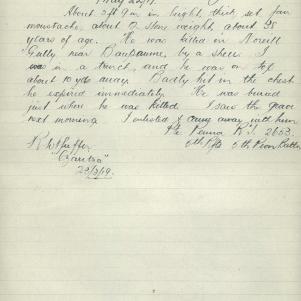 About 5ft 9in in height, thick set, fair
moustache, about 12 stone weight, about 25
years of age. He was killed in Noreuil
Gully near Bapaume, by a shell. I
was in a trench, and he was on top
about 10 yds away. Badly hit in the chest
he expired immediately. He was buried
just where he was killed. I saw the grave
next morning. I enlisted & came away with him
Pte Penna R.J. 2653
5th Pion Battn
"Cantra"
29/3/19.